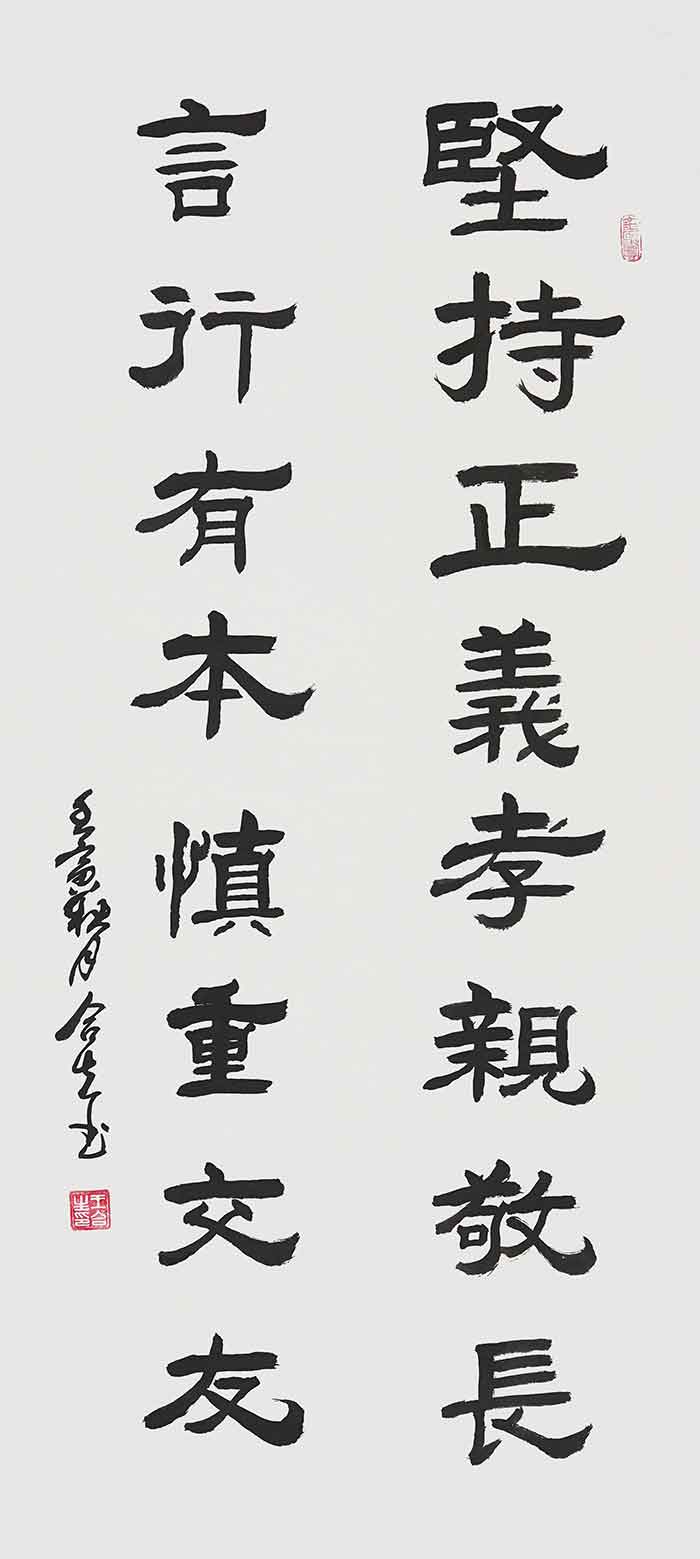 堅持正義孝親敬長
言行有本慎重交友
壬寅秋月合生书